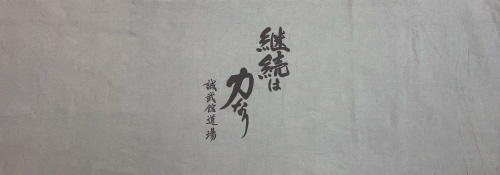 継続は
力なり
誠武館道場